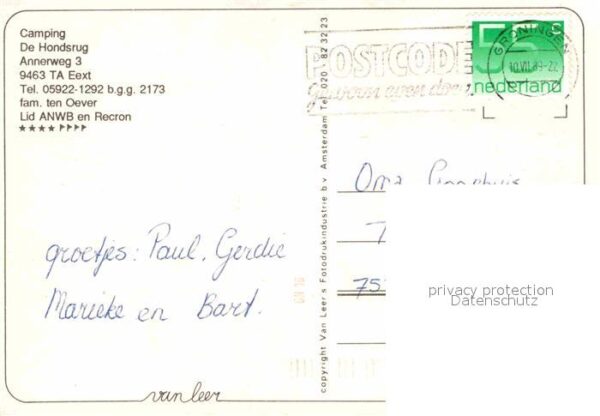 Camping
De Hondsrug
Annerweg 3
9463 TA Eext
Tel. 05922-1292 b.g.g. 2173
fam. ten Oever
Lid ANWB en Recron
★★★★
groetjes: Paul, Gerdie
Marieke en Bart.
van leer
copyright Van Leer's Fotodrukindustrie b.v. Amsterdam Tel. 020 - 82 32 23
POSTCODE
gewoon even doen
55 c
nederland
GRONINGEN
10.VII.89-22
Oma
75
privacy protection
Datenschutz